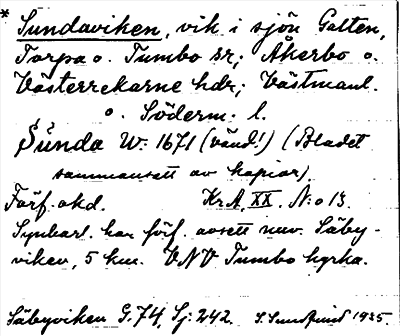 * Sundaviken, vik i sjön Galten,
Torpa o. Tumbo sr; Åkerbo o.
Västerrekarne hdr; Västmanl.
o. Söderm. l.
Sunda W: 1671 (vänd!) (Bladet
sammansatt av kopior).
Förf. okd. Kr A, XX. N:o 13.
Synbarl. har förf. avsett nuv. Säby-
viken, 5 km. VNV Tumbo kyrka.
Säbyviken G. 74, Sj: 242. S. Sundquist 1935.